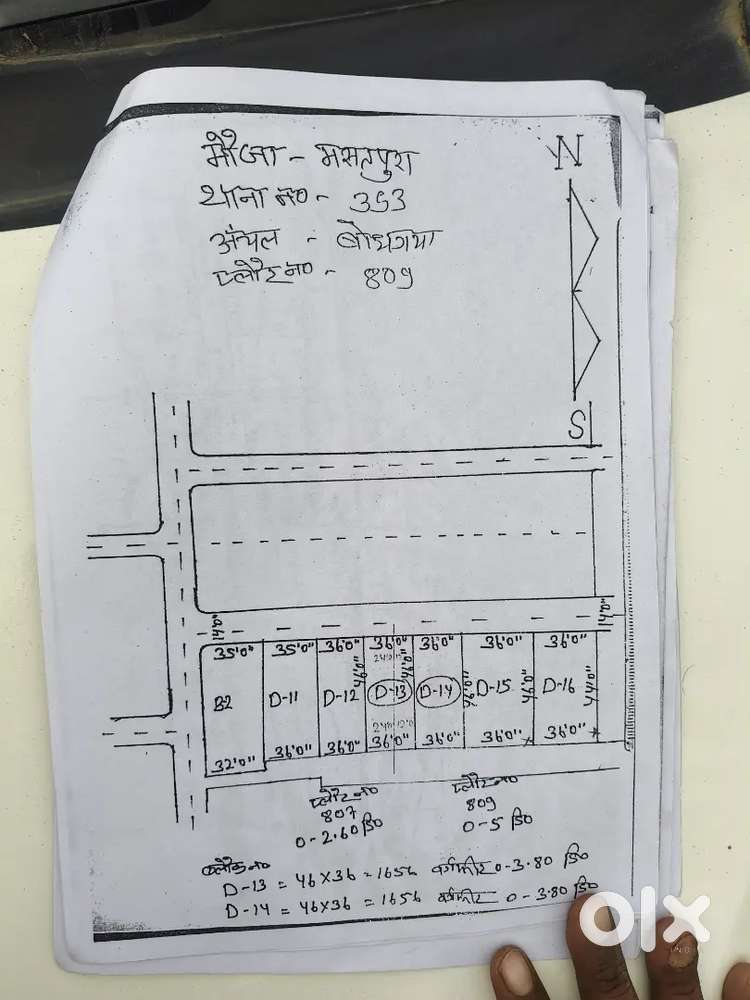 मौजा - मसतपुरा
थाना न० - 353
अंचल - बोधगया
प्लौट न० - 809
N
S
14'0" 14'0"
35'0" 35'0" 36'0" 36'0" 36'0" 36'0" 36'0"
46'0" 46'0" 46'0" 46'0" 44'0"
B2 D-11 D-12 D-13 D-14 D-15 D-16
32'0" 36'0" 36'0" 36'0" 36'0" 36'0" 36'0"
प्लौट न० प्लौट न०
807 809
0-2.60 डि० 0-5 डि०
ब्लौक न०
D-13 = 46x36 = 1656 वर्गफीट 0-3.80 डि०
D-14 = 46x36 = 1656 वर्गफीट 0-3.80 डि०
olx